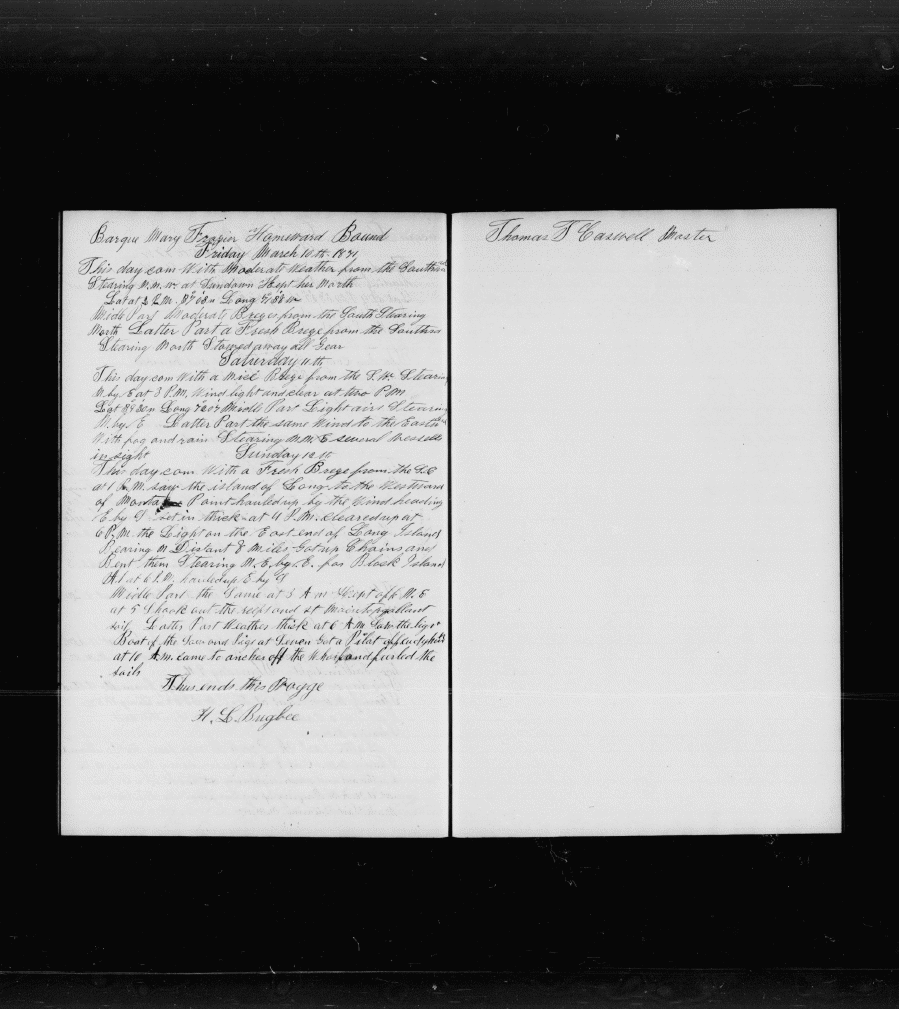 Barque Mary Frazier Homeward Bound
Friday March 10th 1871
This day com With Moderate Weather from the Southward
Stearing N.N.W. at Sundown Kept her North
Lat at 2 P.M. Long
Midle Part Moderate Brezes from the South Stearing
North Latter Part a Fresh Breze from the Southard
Stearing North Stowed away all Gear
Saturday 11th
This day com With a Breze from the S.W. Stearing
N. by E at 3 P.M. Wind light and clear at two P.M
Lat Long Middle Part Light airs Stearing
N. by E Latter Part the same Wind to the Eastward
With fog and rain Stearing N.N.E several vessels
in sight Sunday 12th
This day com With a Fresh Breze from the
at 1 P.M. saw the island of Long to the Westward
of Point hauled up by the Wind heading
E by S set in thick at 4 P.M. cleared up at
6 P.M. the Light on the East end of Long Island
Bearing N Distant 8 Miles Got up Chains and
Bent them Stearing N.E. by E. for Block Island
at 6 P.M. hauled up E by S
Midle Part the Same at 3 A m Kept off N.E
at 5 Shook out the reefs and set Maintopgallant
sail Latter Part Weather thick at 6 A.M. Saw the light
Boat of the Sow and Pigs at Seven Got a Pilot off
at 10 A.M. came to anchor off the Wharf and furled the
sails
Thus ends this Voyge
H. L. Bugbee
Thomas T Caswell Master